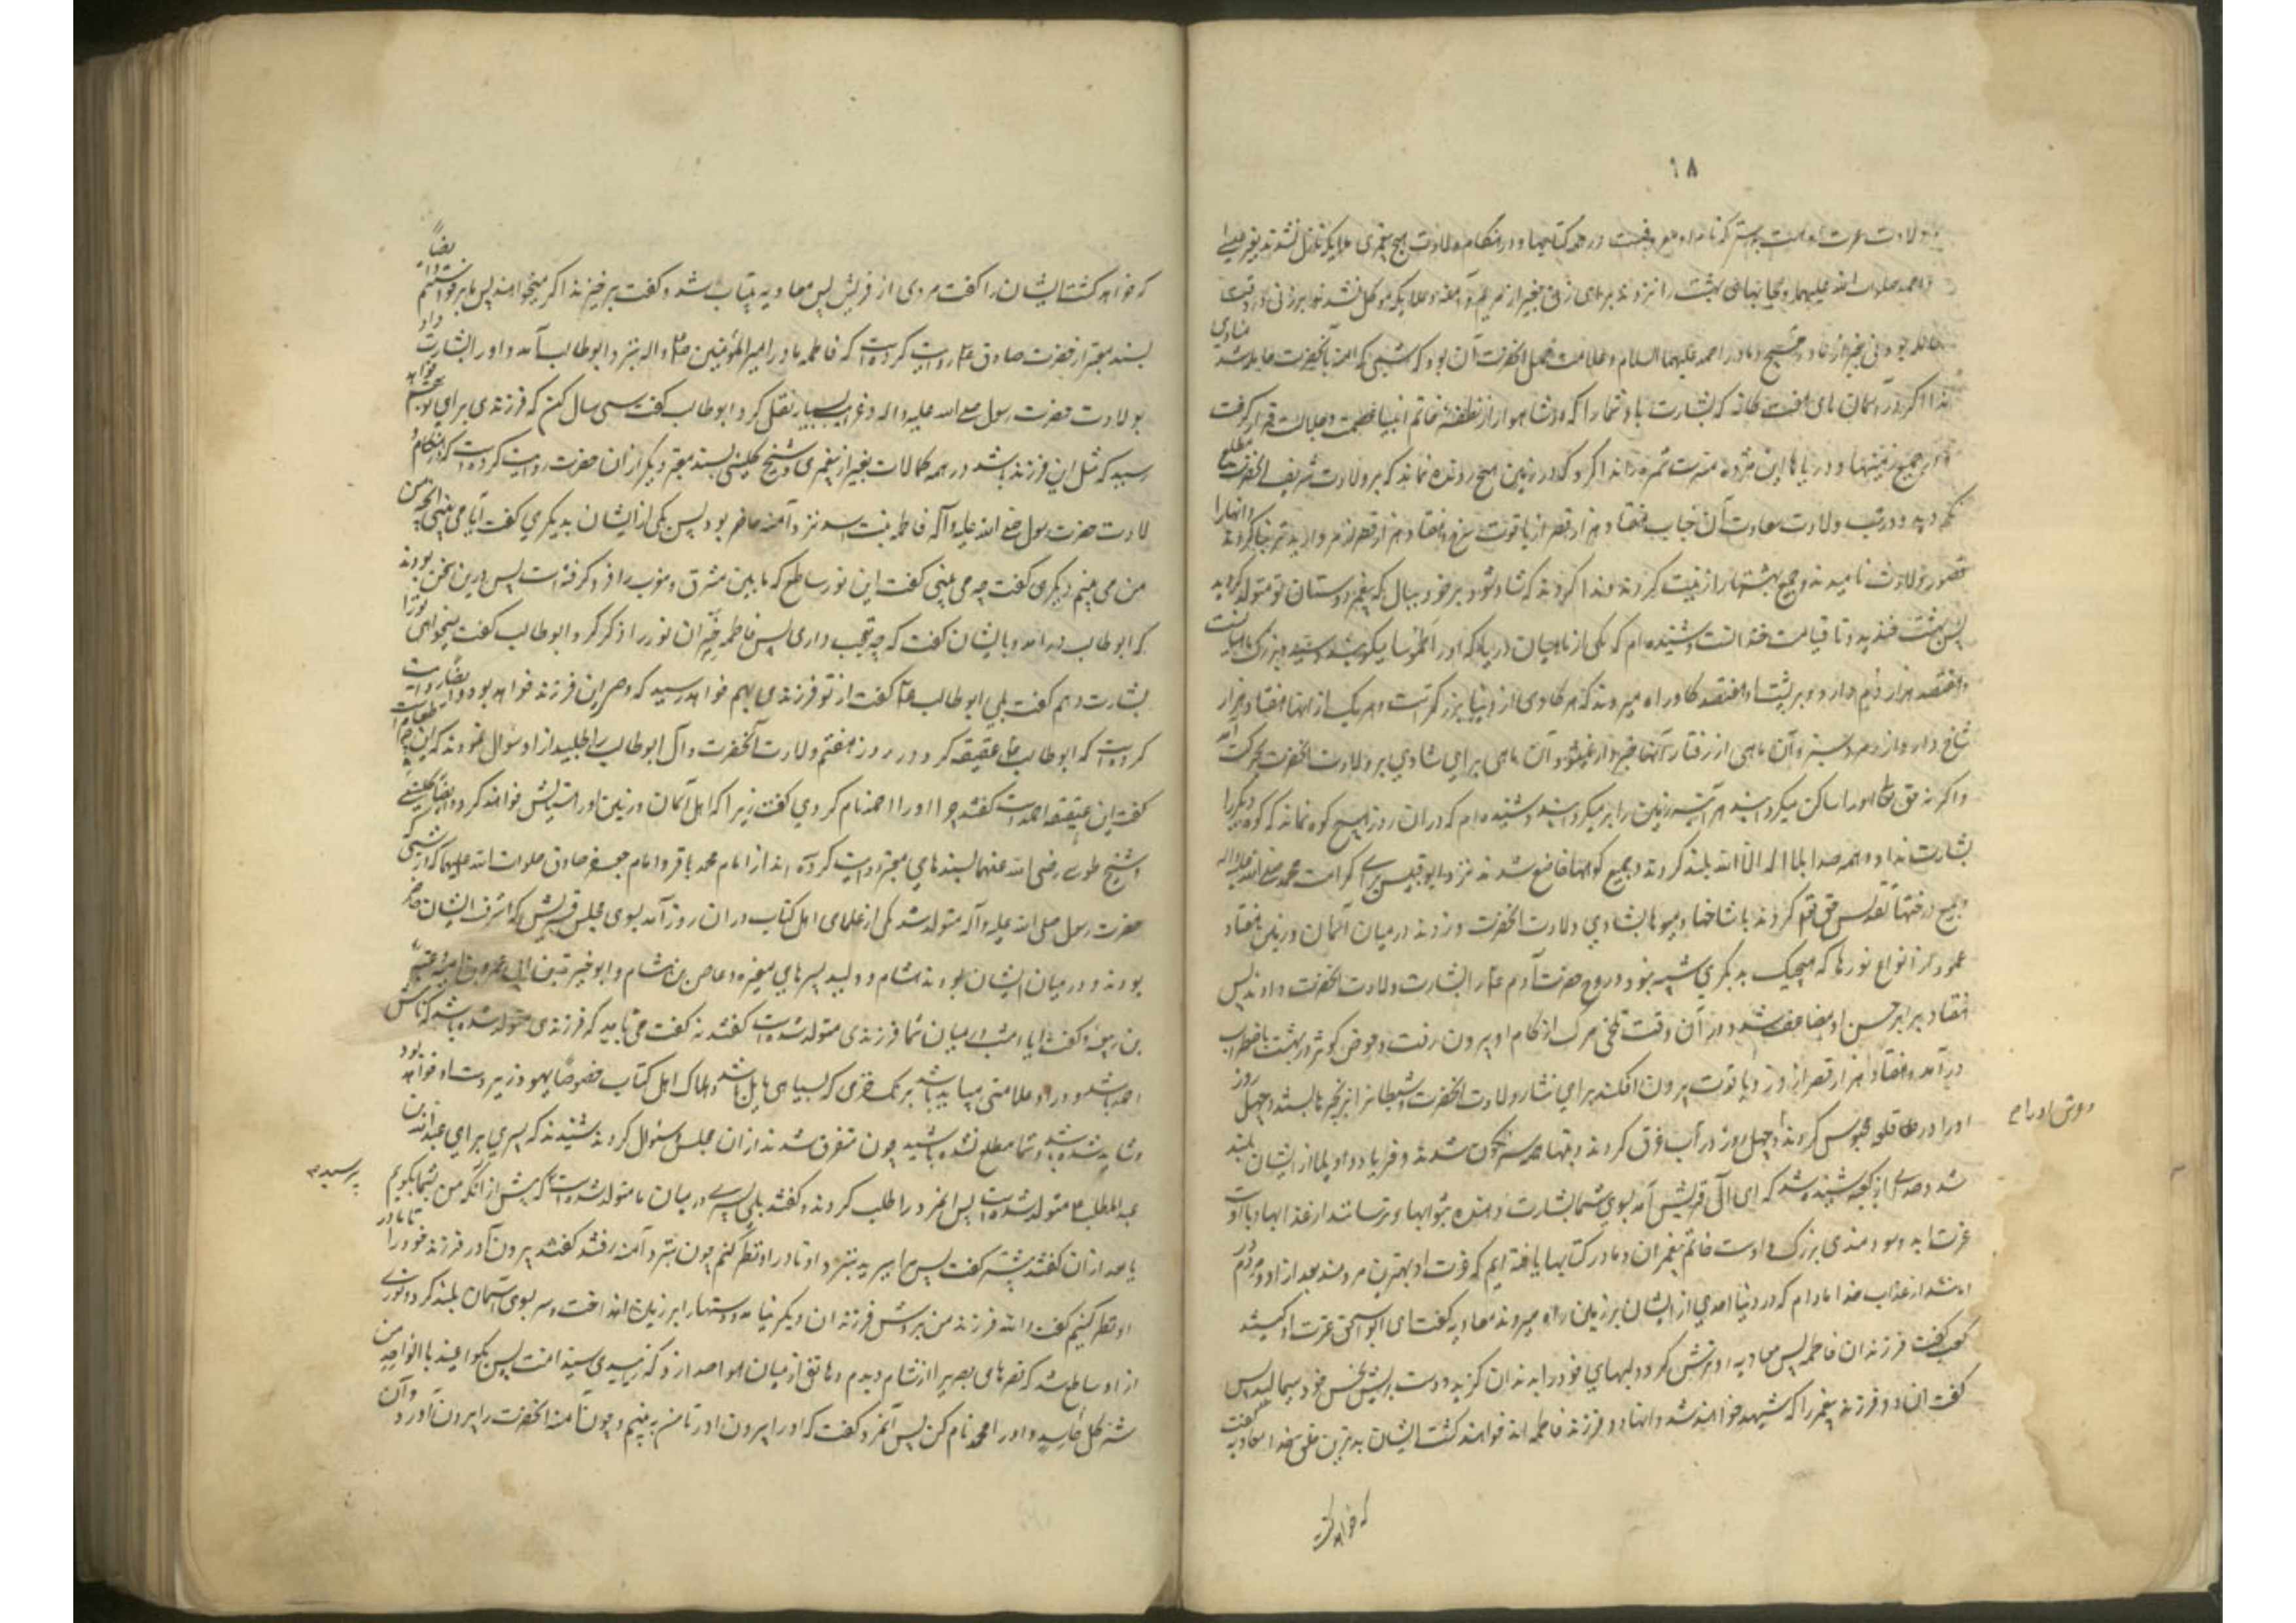 ۶۸
و ولادت عترت او هست بدرستی که نام او معروفست در همه کتابها و در هنگام ولادت هیچ پیغمبری ملایکه نازل نشدند بغیر عیسی
و احمد صلوات الله علیهما و حجابهای بهشت را نزدند برای زنی بغیر از مریم و آمنه و ملایکه موکل نشدند بر زنی در وقتی که
حامله بود زنی بغیر از مادر مسیح و مادر احمد علیهما السلام و علامت حمل آنحضرت آن بود که شبی که آمنه بآنحضرت حامله شد منادی
ندا کرد در آسمان های هفت گانه که بشارت باد شما را که در شاهوار از نطفهٔ خاتم انبیا عصمت و جلالت قرار گرفت
و در جمیع زمینها و دریاها این مژده مسرت ثمره را ندا کردند که در زمین هیچ رونده نماند که بر ولادت شریف آنحضرت مطلع
نگردید و در شب ولادت سعادت آن جناب هفتاد هزار قصر از یاقوت سرخ و هفتاد هزار قصر از مروارید تر بنا کردند و آنها را
قصور ولادت نامیدند و جمیع بهشتها را زینت کردند و ندا کردند که شاد شو و بر خود ببال که پیغمبر دوستان تو متولد گردید
پس بهشت خندید و تا قیامت خندانست و شنیده ام که یکی از ماهیان دریا که او را طموسا میگویند و سید و بزرگ ماهیانست
و هفتصد هزار دم دارد و بر پشت او هفتصد هزار گاو راه میروند که هر گاوی از دنیا بزرگتر است و هر یک از آنها هفتاد هزار
شاخ دارد از زمرد سبز و آن ماهی از رفتار آنها خبر دار نمیشود آن ماهی برای شادی بر ولادت آنحضرت بحرکت آمد
و اگر نه حق تعالی او را ساکن میگردانید هر آینه زمین را بر میگردانید و شنیده ام که در آن روز هیچ کوه نماند که کوه دیگر را
بشارت نداد و همه صدا بلا اله الا الله بلند کردند و جمیع کوهها خاضع شدند نزد ابو قبیس برای کرامت محمد صلی الله علیه و اله
و جمیع درختها تقدیس حق تعالی کردند با شاخها و میوه ها بشادی ولادت آنحضرت و زدند در میان آسمان و زمین هفتاد
عمود از انواع نورها که هیچیک بدیگری شبیه نبود و روح حضرت آدم ع را بشارت ولادت آنحضرت دادند پس
هفتاد برابر حسن او مضاعف شد و در آن وقت تلخی مرگ از کام او بیرون رفت و حوض کوثر در بهشت باضطراب
در آمد و هفتاد هزار قصر از در و یاقوت بیرون افکند برای نثار ولادت آنحضرت و شیطانرا بزنجیر ها بستند و چهل روز
او را در قلعه محبوس کردند و چهل روز در آب غرق کردند و بتها همه سرنگون شدند و فریاد و واویلا از ایشان بلند
شد و صدایی از کعبه شنیده شد که ای آل قریش آمد بسوی شما بشارت دهنده بثوابها و ترساننده از عذابها و با اوست
عزت ابد و سودمندی بزرگ و اوست خاتم پیغمبران و ما در کتابها یافته ایم که عترت او بهترین مردمند بعد از او و مردم در
امانند از عذاب خدا مادام که در دنیا احدی از ایشان بر زمین راه میروند معاویه گفت ای ابو اسحق عترت او کیستند
کعب گفت فرزندان فاطمه پس معاویه رو ترش کرد و لبهای خود را بدندان گزید و دست بریش نحس خود میمالید پس
گفت آن دو فرزند پیغمبر را که شهید خواهند شد و آنها دو فرزند فاطمه اند خواهند کشت ایشان بدترین خلق خدا معاویه گفت
که خواهد کشت
که خواهد کشت ایشان را گفت مردی از قریش پس معاویه بیتاب شد و گفت برخیزید اگر میخواهید پس ما برخواستیم و ایضاً
بسند معتبر از حضرت صادق ع روایت کرده است که فاطمه مادر امیر المؤمنین ص و اله بنزد ابو طالب آمد و او را بشارت داد
بولادت حضرت رسول صلی الله علیه و اله و غرایب بسیار نقل کرد ابو طالب گفت سی سال مکن که فرزندی برای تو بهم خواهد
رسید که مثل این فرزند باشد در همه کمالات بغیر از پیغمبری و شیخ کلینی بسند معتبر دیگر از آن حضرت روایت کرده است که در هنگام و
لادت حضرت رسول صلی الله علیه و آله فاطمه بنت اسد نزد آمنه حاضر بود پس یکی از ایشان بدیگری گفت آیا می بینی آنچه من
من می بینم دیگری گفت چه می بینی گفت این نور ساطع که ما بین مشرق و مغرب را فرو گرفته است پس درین سخن بودند
که ابو طالب در آمد و بایشان گفت که چه تعجب دارید پس فاطمه خبر آن نور را ذکر کرد ابو طالب گفت میخواهی تو را
بشارت دهم گفت بلی ابو طالب گفت از تو فرزندی بهم خواهد رسید که وصی این فرزند خواهد بود و ایضاً روایت
کرده است که ابو طالب عقیقه کرد در روز هفتم ولادت آنحضرت و آل ابو طالب را طلبید از او سوال نمودند که این چه طعام است
گفت این عقیقه احمد است گفتند چرا او را احمد نام کردی گفت زیرا که اهل آسمان و زمین او را ستایش خواهند کرد و ایضاً کلینی
و شیخ طوسی رضی الله عنهما بسندهای معتبر روایت کرده اند از امام محمد باقر و امام جعفر صادق صلوات الله علیهما که در شبی که
حضرت رسول صلی الله علیه و آله متولد شد یکی از علمای اهل کتاب در آن روز آمد بسوی مجلس قریش که اشرف ایشان حاضر
بودند و در میان ایشان بودند هشام و ولید پسرهای مغیره و عاص بن هشام و ابو
بن ربیعه و گفت آیا امشب در میان شما فرزندی متولد شده است گفتند نه گفت می باید که فرزندی متولد شده باشد که نامش
احمد باشد و در او علامتی میباید باشد برنگ خزی که بسیاهی مایل باشد و هلاک اهل کتاب خصوصاً یهود بر دست او خواهد بود
و شاید شده باشد و شما مطلع نشده باشید چون متفرق شدند از آن مجلس و سئوال کردند شنیدند که پسری برای عبد الله بن
عبد المطلب متولد شده است پس آنمرد را طلب کردند و گفتند بلی پسری در میان ما متولد شده است پرسید که پیش از آنکه من بشما بگویم
یا بعد از آن گفتند پیشتر گفت پس مرا ببرید بنزد او تا در او نظر کنم چون بنزد آمنه رفتند گفتند بیرون آور فرزند خود را تا ما در
او نظر کنیم گفت و الله فرزند من بروش فرزندان دیگر نیامد و دستها را بر زمین انداخت و سر بسوی آسمان بلند کرد و نوری
از او ساطع شد که قصرهای بصری را از شام دیدم و هاتفی از میان هوا صدا زد که زاییدی سید امت پس بگو اعیذه بالواحد من
شر کل حاسد و او را محمد نام کن پس آنمرد گفت که او را بیرون آور تا من به بینم و چون آمنه آنحضرت را بیرون آورد و آن